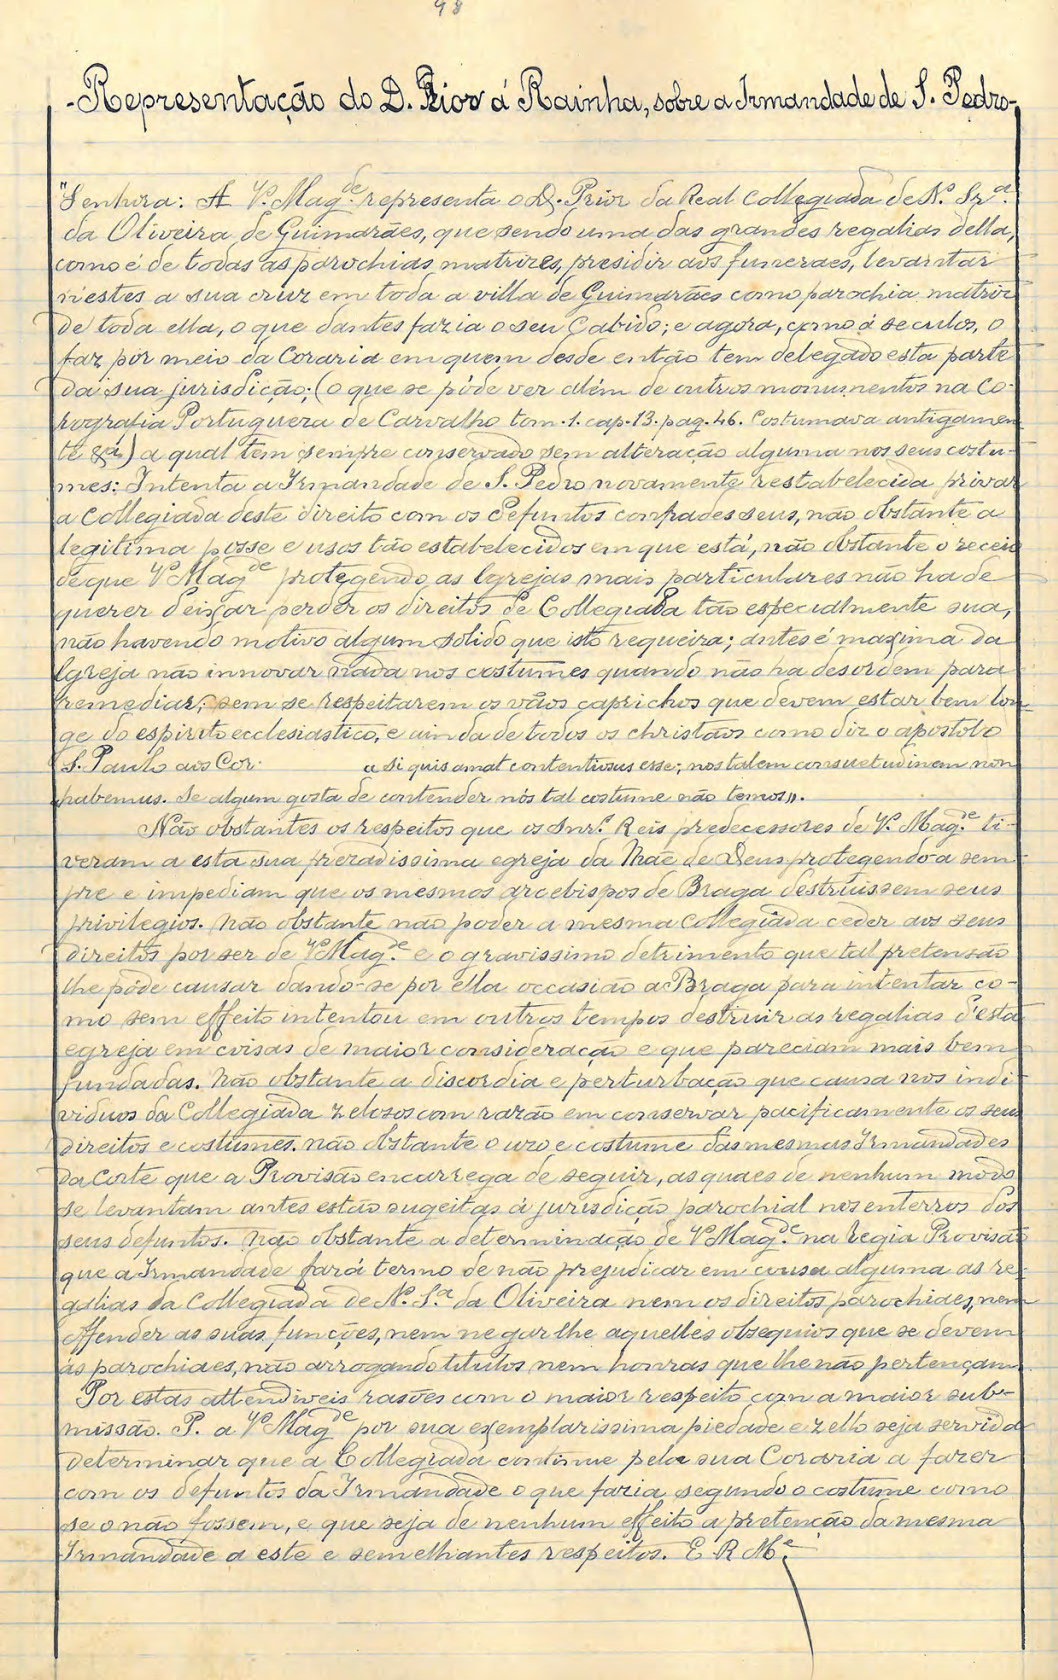 98
-Representação do D. Prior á Rainha, sobre a Irmandade de S. Pedro-
"Senhora: A Vª. Magde. representa o D. Prior da Real Collegiada de Nª. Srª.
da Oliveira de Guimarães, que sendo uma das grandes regalias della,
como é de todas as parochias matrizes, presidir aos funeraes, levantar
n'estes a sua cruz em toda a villa de Guimarães como parochia matriz
de toda ella, o que dantes fazia o seu Cabido; e agora, como á seculos, o
faz por meio da Coraria em quem desde então tem delegado esta parte
da sua jurisdição; (o que se póde ver além de outros monumentos na Co-
rografia Portugueza de Carvalho tom. 1. cap. 13. pag. 46. Costumava antigamen-
te &ª) a qual tem sempre conservado sem alteração alguma nos seus costu-
mes: Intenta a Irmandade de S. Pedro novamente restabelecida privar
a Collegiada deste direito com os defuntos confrades seus, não obstante a
legitima posse e usos tão estabelecidos em que está, não obstante o receio
de que Vª Magde protegendo as Igrejas mais particulares não ha de
querer deixar perder os direitos de Collegiada tão especialmente sua,
não havendo motivo algum solido que isto requeira; antes é maxima da
Igreja não innovar nada nos costumes quando não ha desordem para
remediar; sem se respeitarem os vãos caprichos que devem estar bem lon-
ge do espirito ecclesiastico, e ainda de todos os christãos como diz o apostolo
S. Paulo aos Cor. «Si quis amat contentiosus esse; nos talem consuetudinem non
habemus. Se algum gosta de contender nós tal costume não temos».
Não obstantes os respeitos que os Snrs. Reis predecessores de Vª. Magde. ti-
veram a esta sua prezadissima egreja da Mãe de Deus protegendo-a sem-
pre e impediam que os mesmos arcebispos de Braga destruissem seus
privilegios. Não obstante não poder a mesma Collegiada ceder aos seus
direitos por ser de Vª Magde. e o gravissimo detrimento que tal pretensão
lhe póde causar dando-se por ella occasião a Braga para intentar co-
mo sem effeito intentou em outros tempos destruir as regalias d'esta
egreja em coisas de maior consideração e que pareciam mais bem
fundadas. Não obstante a discordia e perturbação que causa nos indi-
viduos da Collegiada zelosos com razão em conservar pacificamente os seus
direitos e costumes. não obstante o uzo e costume das mesmas Irmandades
da Corte que a Provisão encarrega de seguir, as quaes de nenhum modo
se levantam antes estão sugeitas á jurisdição parochial nos enterros dos
seus defuntos. Não obstante a determinação de Vª Magde. na regia Provisão
que a Irmandade fará termo de não prejudicar em cousa alguma as re-
galias da Collegiada de Nª. Sª. da Oliveira nem os direitos parochiaes, nem
offender as suas funções, nem negar lhe aquelles obsequios que se devem
ás parochiaes, não arrogando titulos nem honras que lhe não pertençam.
Por estas attendiveis rasões com o maior respeito com a maior sub-
missão. P. a Vª Magde por sua exemplarissima piedade e zello seja servida
determinar que a Collegiada continue pela sua Coraria a fazer
com os defuntos da Irmandade o que faria segundo o costume como
se o não fossem, e que seja de nenhum effeito a pretenção da mesma
Irmandade a este e semelhantes respeitos. E R Mce.